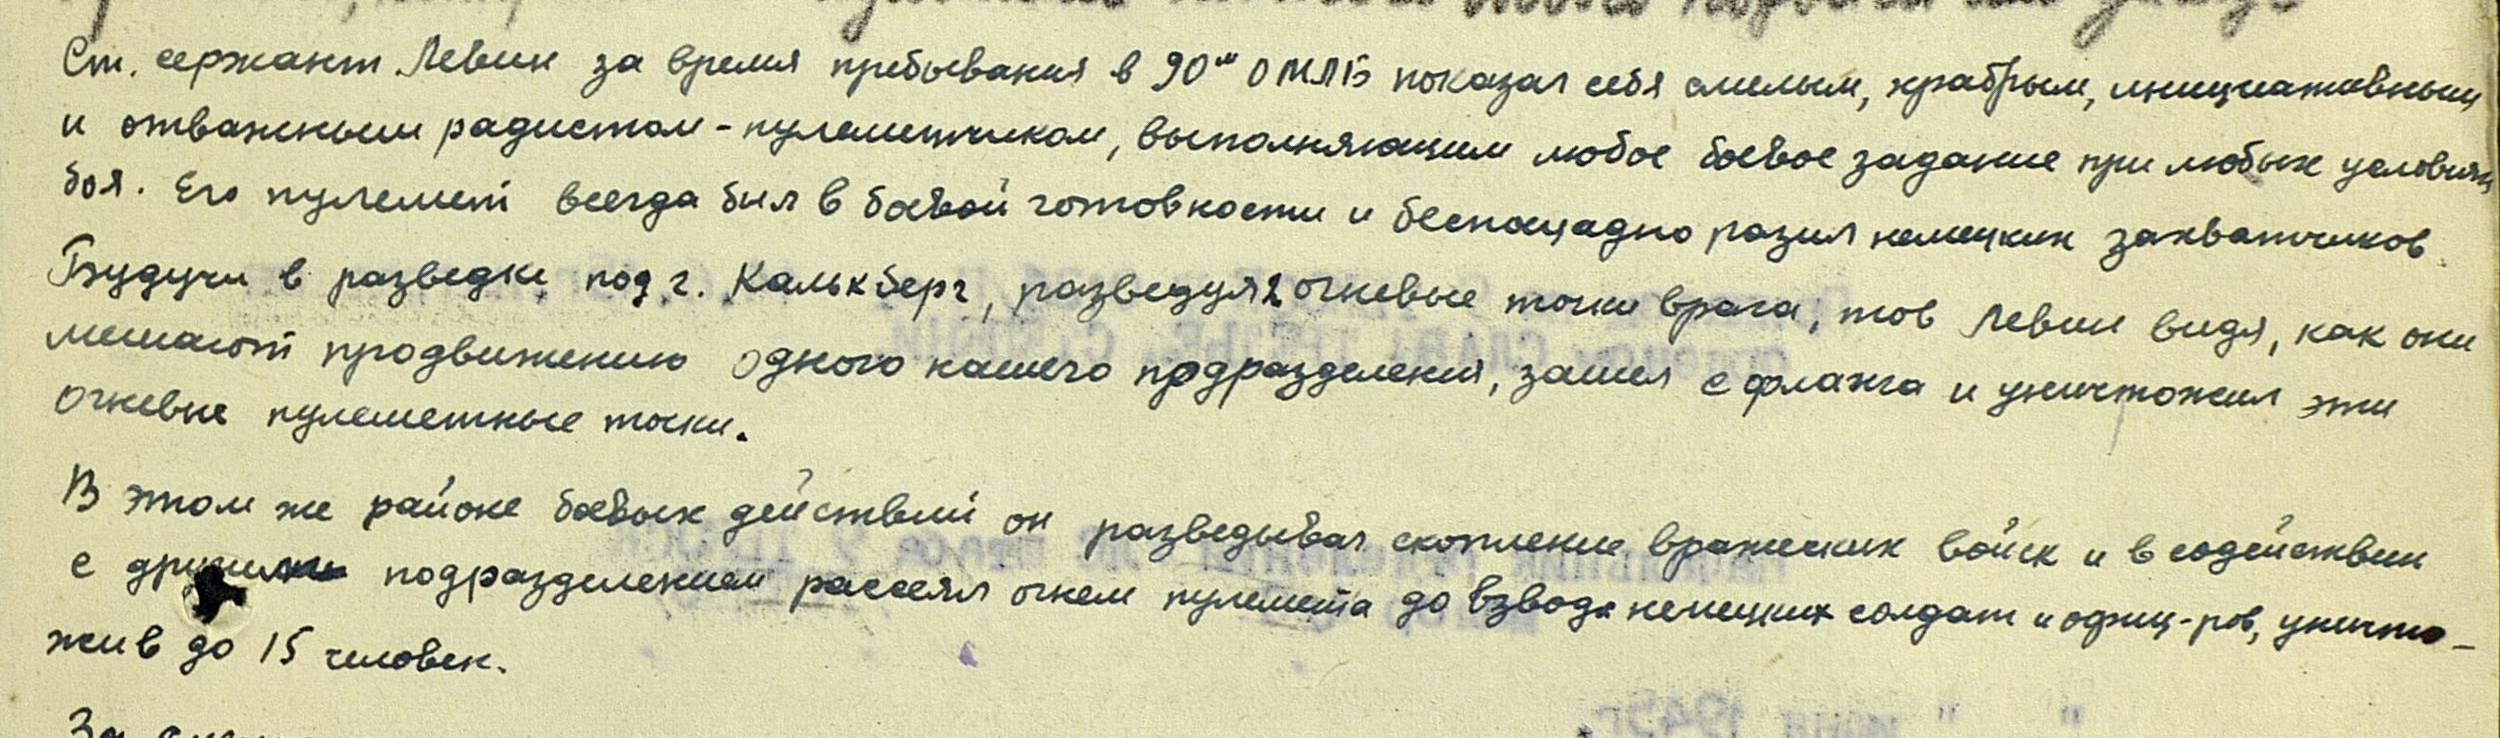 Ст. сержант Левин за время пребывания в 90м ОМЛБ показал себя смелым, храбрым, инициативным
и отважным радистом-пулеметчиком, выполняющим любое боевое задание при любых условиях
боя. Его пулемет всегда был в боевой готовности и беспощадно разил немецких захватчиков.
Будучи в разведке под г. Калькберг, разведуя 2 огневые точки врага, тов Левин видя, как они
мешают продвижению одного нашего подразделения, зашел с фланга и уничтожил эти
огневые пулеметные точки.
В этом же районе боевых действий он разведывал скопление вражеских войск и в содействии
с другими подразделением рассеял огнем пулемета до взвода немецких солдат и офиц-ров, уничто-
жив до 15 человек.
За